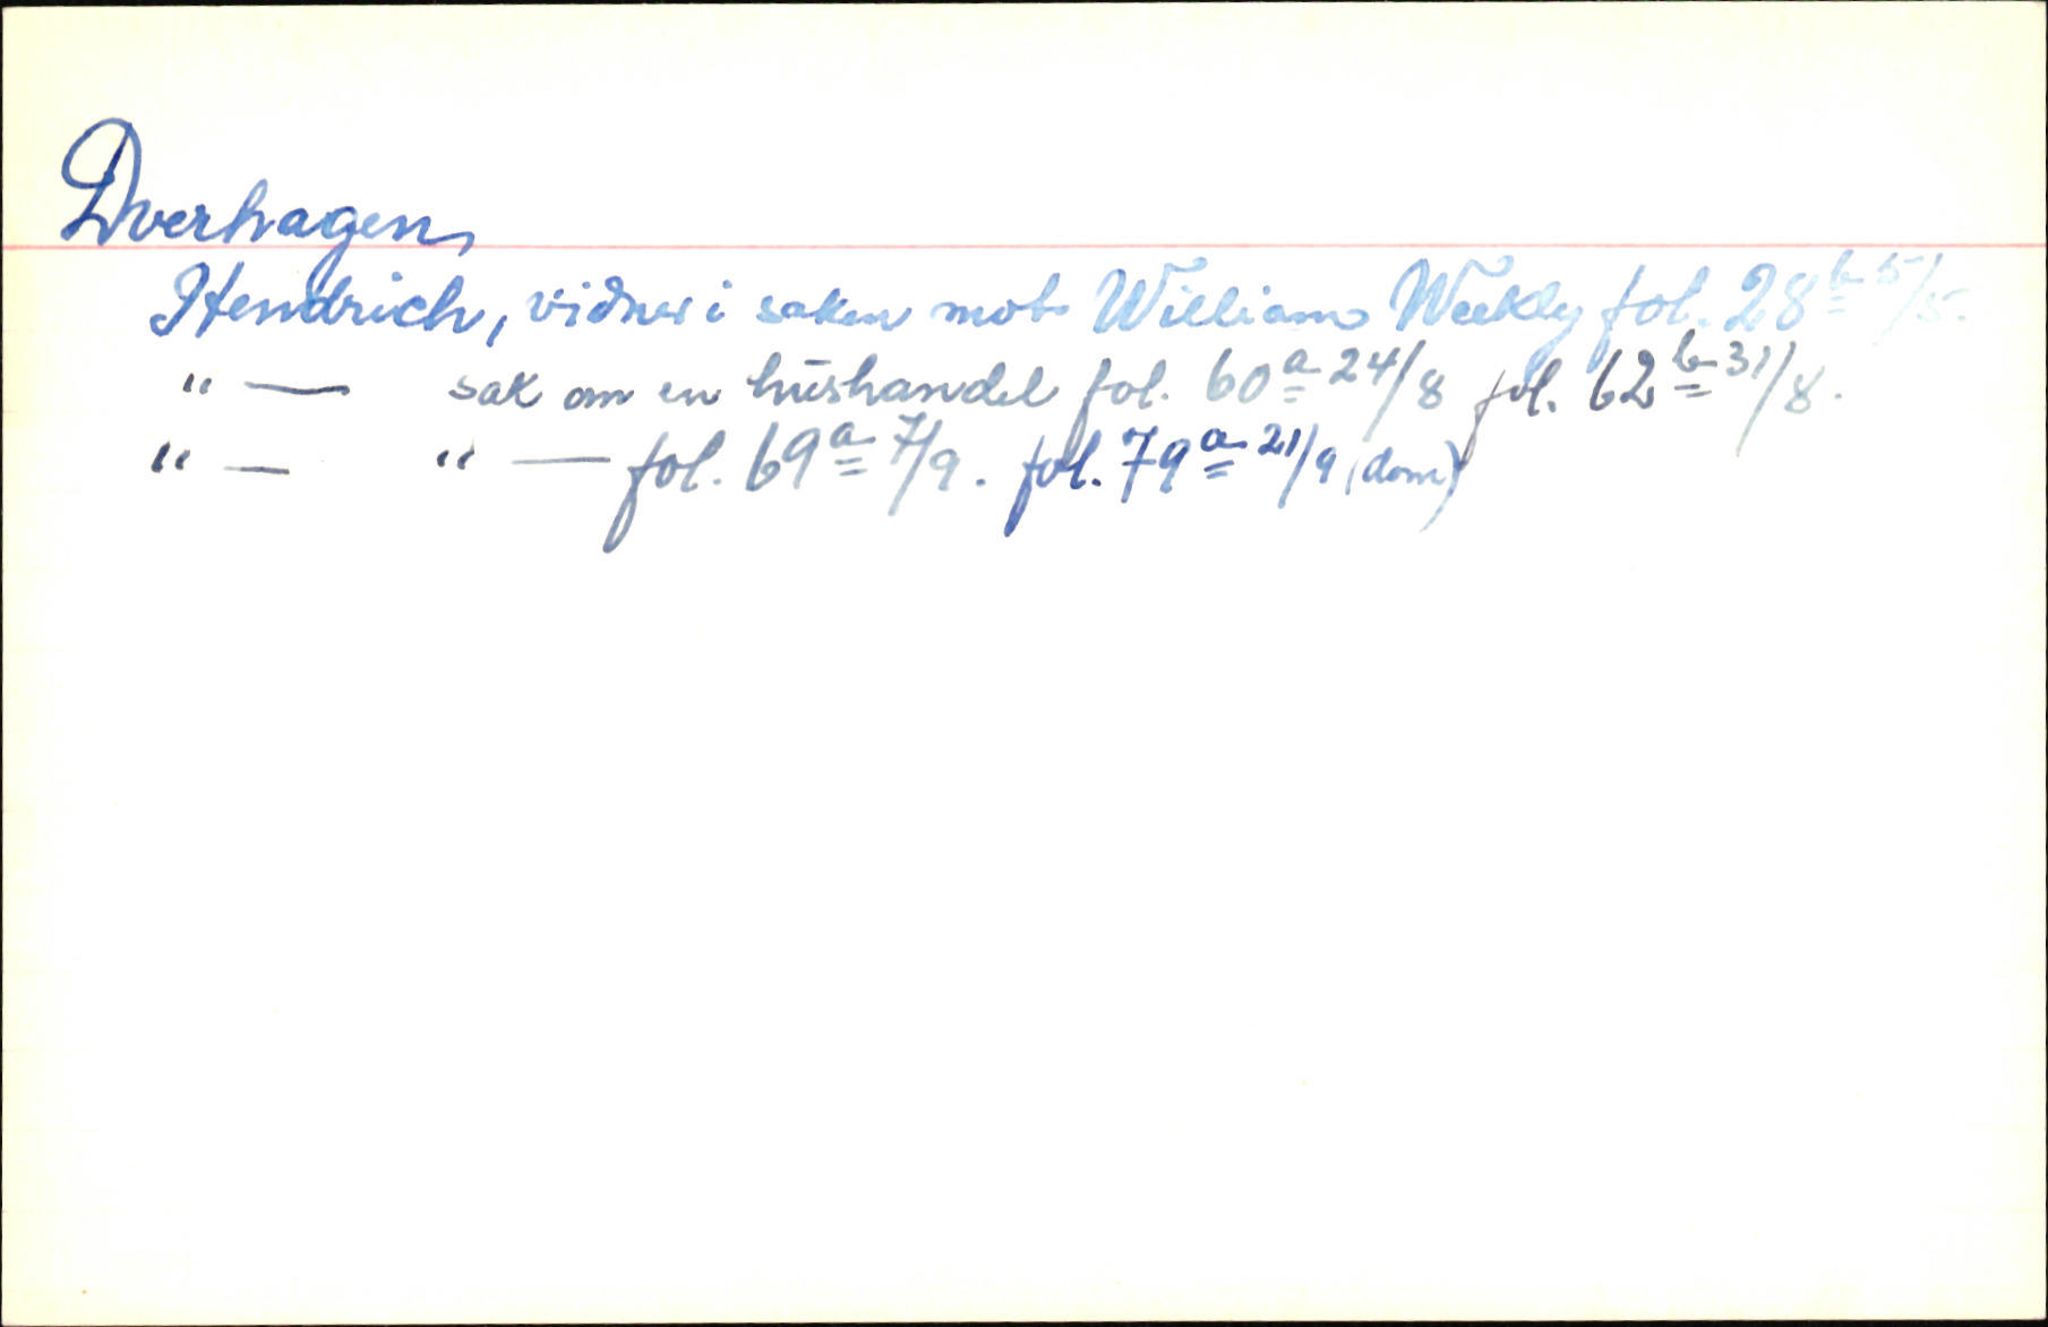 Dverhagen
Hendrich, vidner i saken mot William Weekly fol. 28b 5/5.
" — sak om en hushandel fol. 60a 24/8 fol. 62b 31/8.
" — " — fol. 69a 7/9. fol. 79a 21/9 (dom)